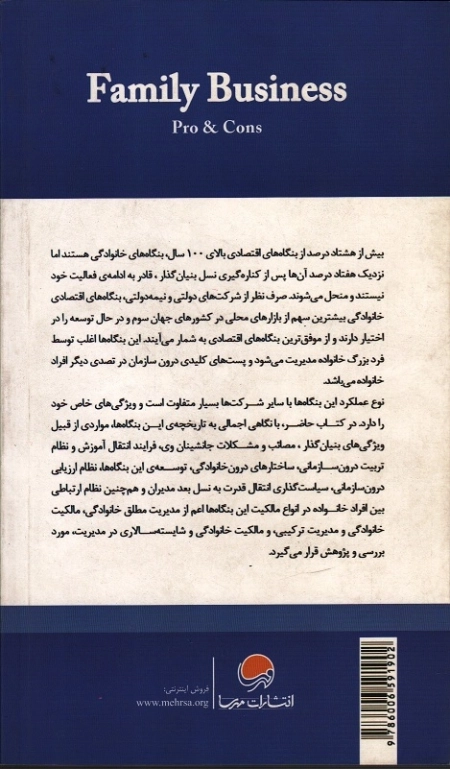 Family Business
Pro & Cons
بیش از هشتاد درصد از بنگاه‌های اقتصادی بالای ۱۰۰ سال، بنگاه‌های خانوادگی هستند اما
نزدیک هفتاد درصد آن‌ها پس از کناره‌گیری نسل بنیان‌گذار، قادر به ادامه‌ی فعالیت خود
نیستند و منحل می‌شوند. صرف نظر از شرکت‌های دولتی و نیمه‌دولتی، بنگاه‌های اقتصادی
خانوادگی بیشترین سهم از بازارهای محلی در کشورهای جهان سوم و در حال توسعه را در
اختیار دارند و از موفق‌ترین بنگاه‌های اقتصادی به شمار می‌آیند. این بنگاه‌ها اغلب توسط
فرد بزرگ خانواده مدیریت می‌شود و پست‌های کلیدی درون سازمان در تصدی دیگر افراد
خانواده می‌باشد.
نوع عملکرد این بنگاه‌ها با سایر شرکت‌ها بسیار متفاوت است و ویژگی‌های خاص خود
را دارد. در کتاب حاضر، با نگاهی اجمالی به تاریخچه‌ی این بنگاه‌ها، مواردی از قبیل
ویژگی‌های بنیان‌گذار، مصائب و مشکلات جانشینان وی، فرایند انتقال آموزش و نظام
تربیت درون‌سازمانی، ساختارهای درون‌خانوادگی، توسعه‌ی این بنگاه‌ها، نظام ارزیابی
درون‌سازمانی، سیاست‌گذاری انتقال قدرت به نسل بعد مدیران و هم‌چنین نظام ارتباطی
بین افراد خانواده در انواع مالکیت این بنگاه‌ها اعم از مدیریت مطلق خانوادگی، مالکیت
خانوادگی و مدیریت ترکیبی، و مالکیت خانوادگی و شایسته‌سالاری در مدیریت، مورد
بررسی و پژوهش قرار می‌گیرد.
انتشارات مهرسا
فروش اینترنتی:
www.mehrsa.org
9786006591902